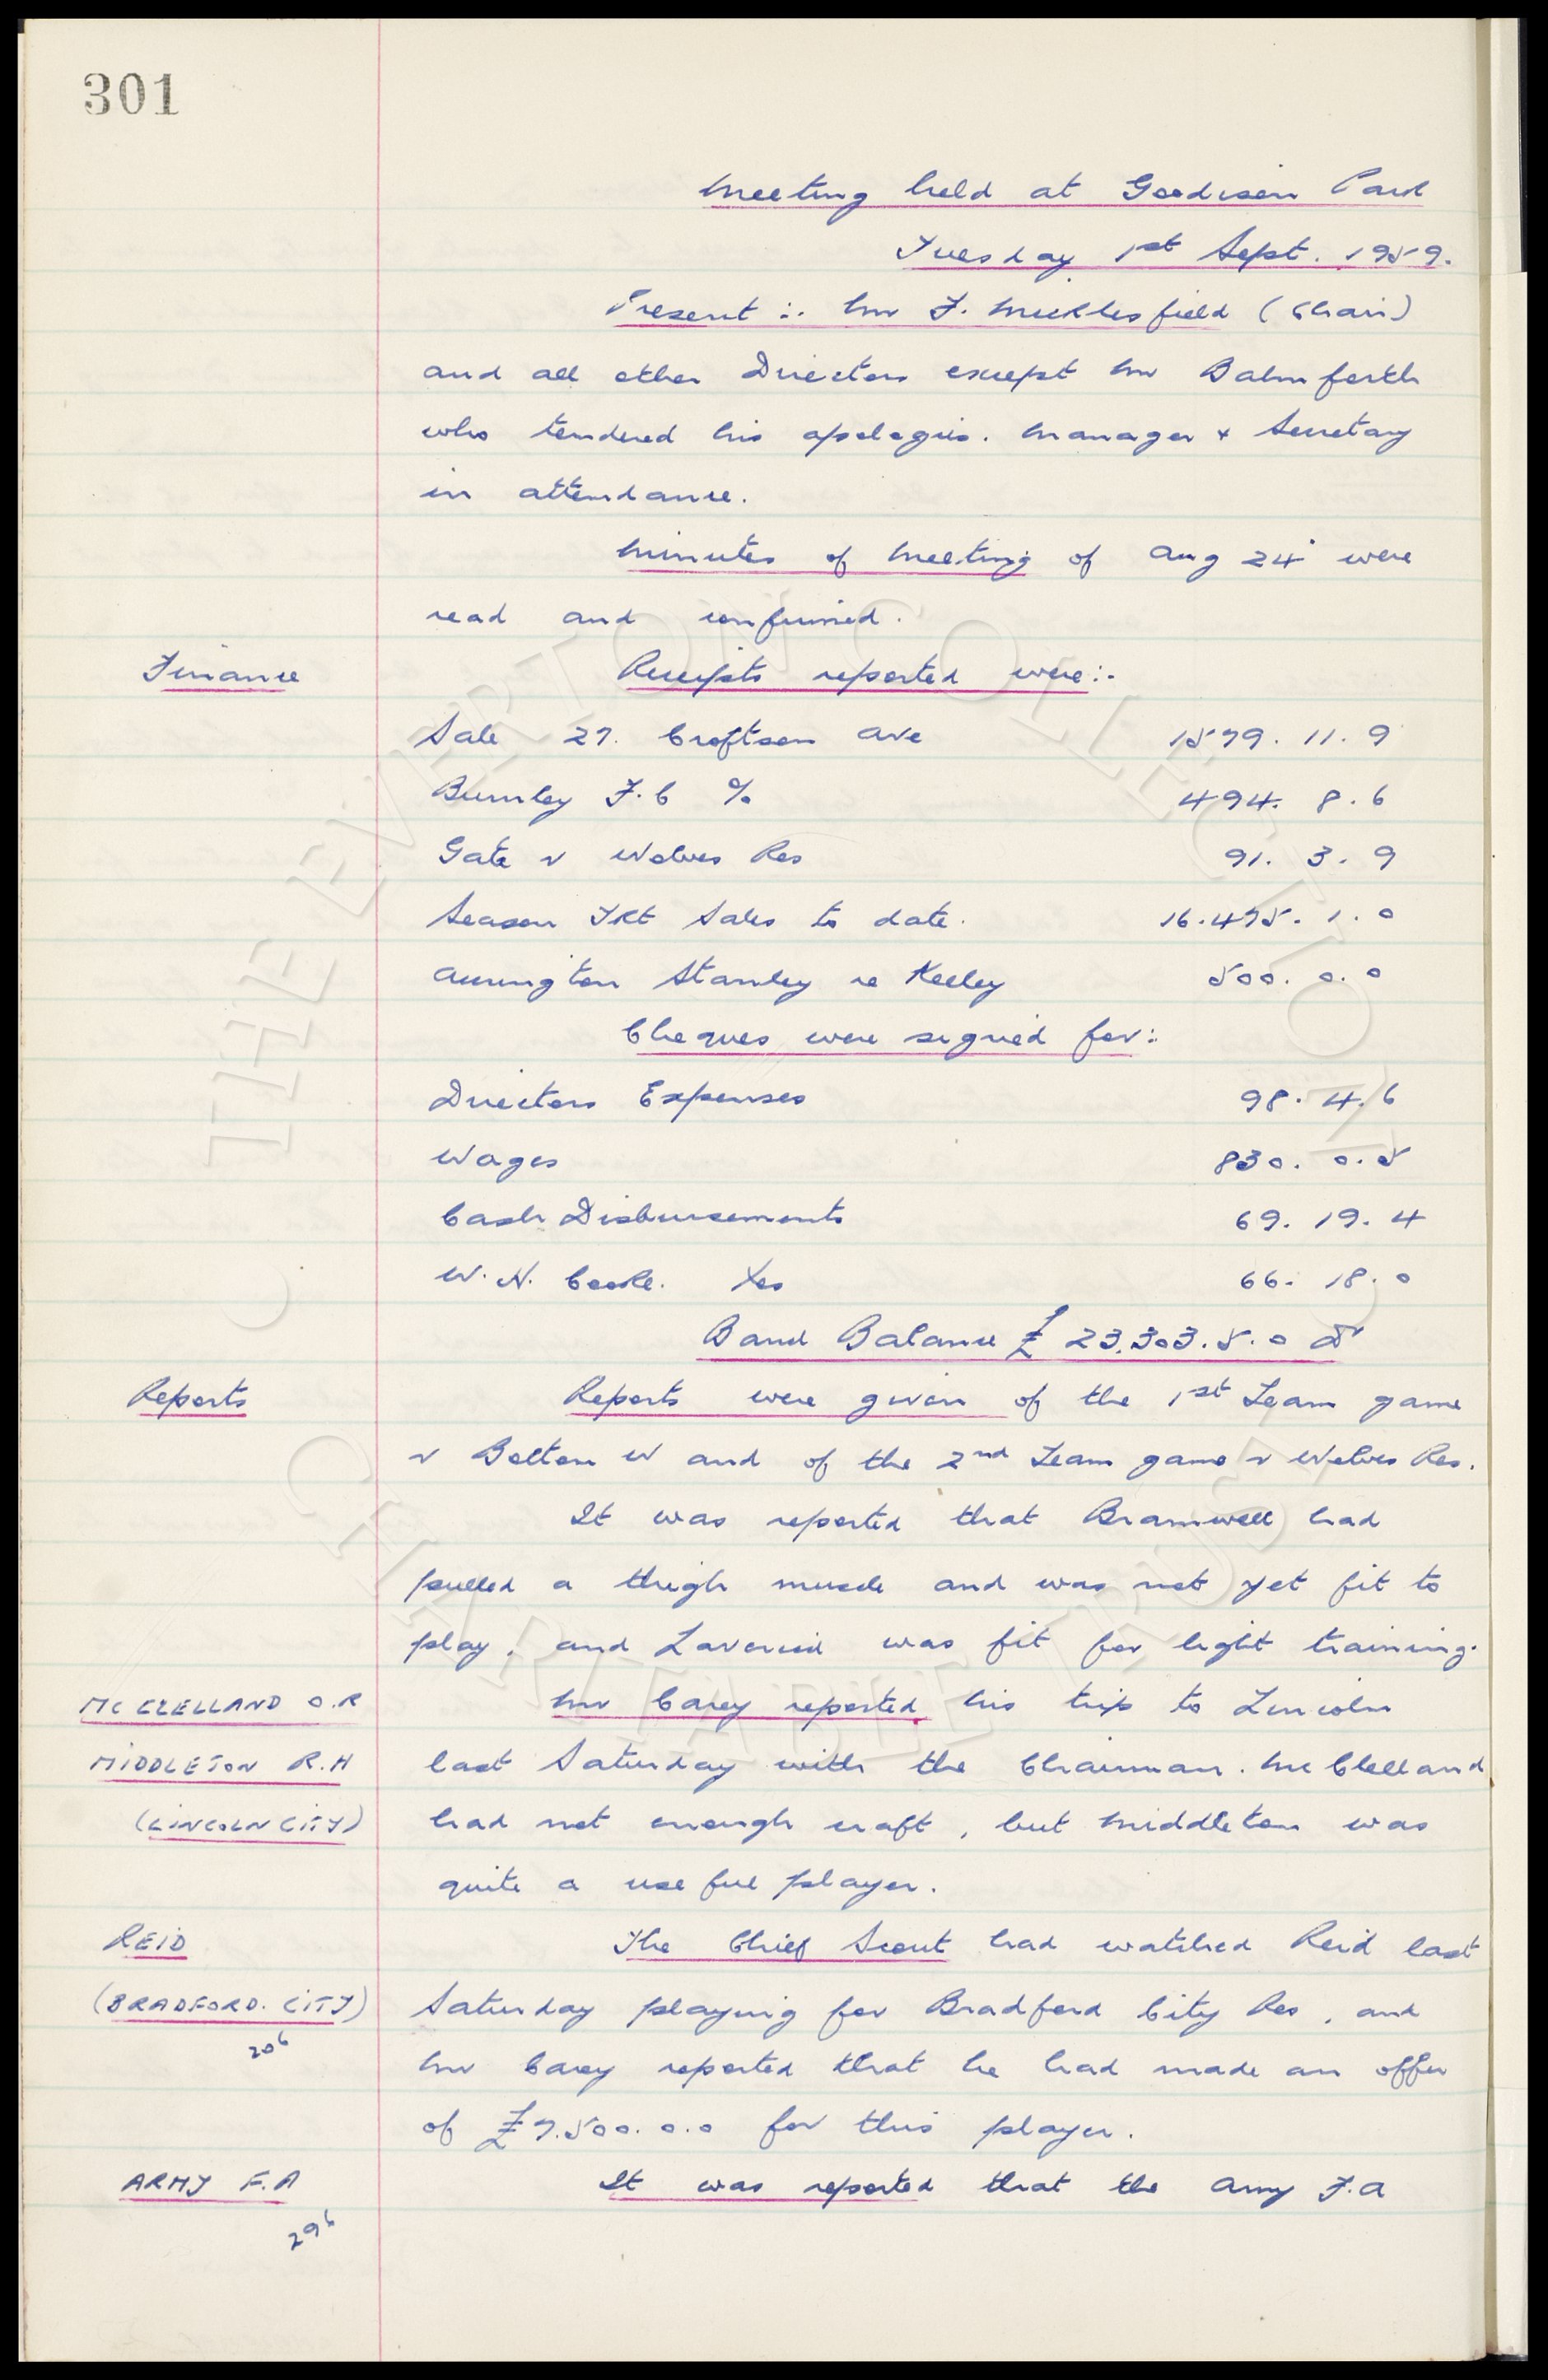 301
Meeting held at Goodison Park
Tuesday 1st Sept. 1959.
Present :. Mr F. Micklesfield (Chair)
and all other Directors except Mr Balmforth
who tendered his apologies. Manager & Secretary
in attendance.
Minutes of Meeting of Aug 24 were
read and confirmed.
Finance Receipts reported were:-
Sale 27. Croftson Ave 1579. 11. 9
Burnley F.C % 494. 8. 6
Gate v Wolves Res 91. 3. 9
Season Tkt Sales to date. 16.475. 1. 0
Accrington Stanley re Keeley 500. 0. 0
Cheques were signed for:
Directors Expenses 98. 4. 6
Wages 830. 0. 5
Cash Disbursements 69. 19. 4
W. H. Cooke. 66. 18. 0
Bank Balance £ 23.303. 5. 0 Dr
Reports Reports were given of the 1st Team game
v Bolton W and of the 2nd Team game v Wolves Res.
It was reported that Bramwell had
pulled a thigh muscle and was not yet fit to
play, and Laverick was fit for light training.
McCLELLAND O.R Mr Carey reported his trip to Lincoln
MIDDLETON R.H last Saturday with the Chairman. McClelland
(LINCOLN CITY) had not enough craft, but Middleton was
quite a useful player.
REID The Chief Scout had watched Reid last
(BRADFORD. CITY) Saturday playing for Bradford City Res, and
206
Mr Carey reported that he had made an offer
of £7.500. 0. 0 for this player.
ARMY F.A It was reported that the Army F.A
296
THE EVERTON COLLECTION
CHARITABLE TRUST